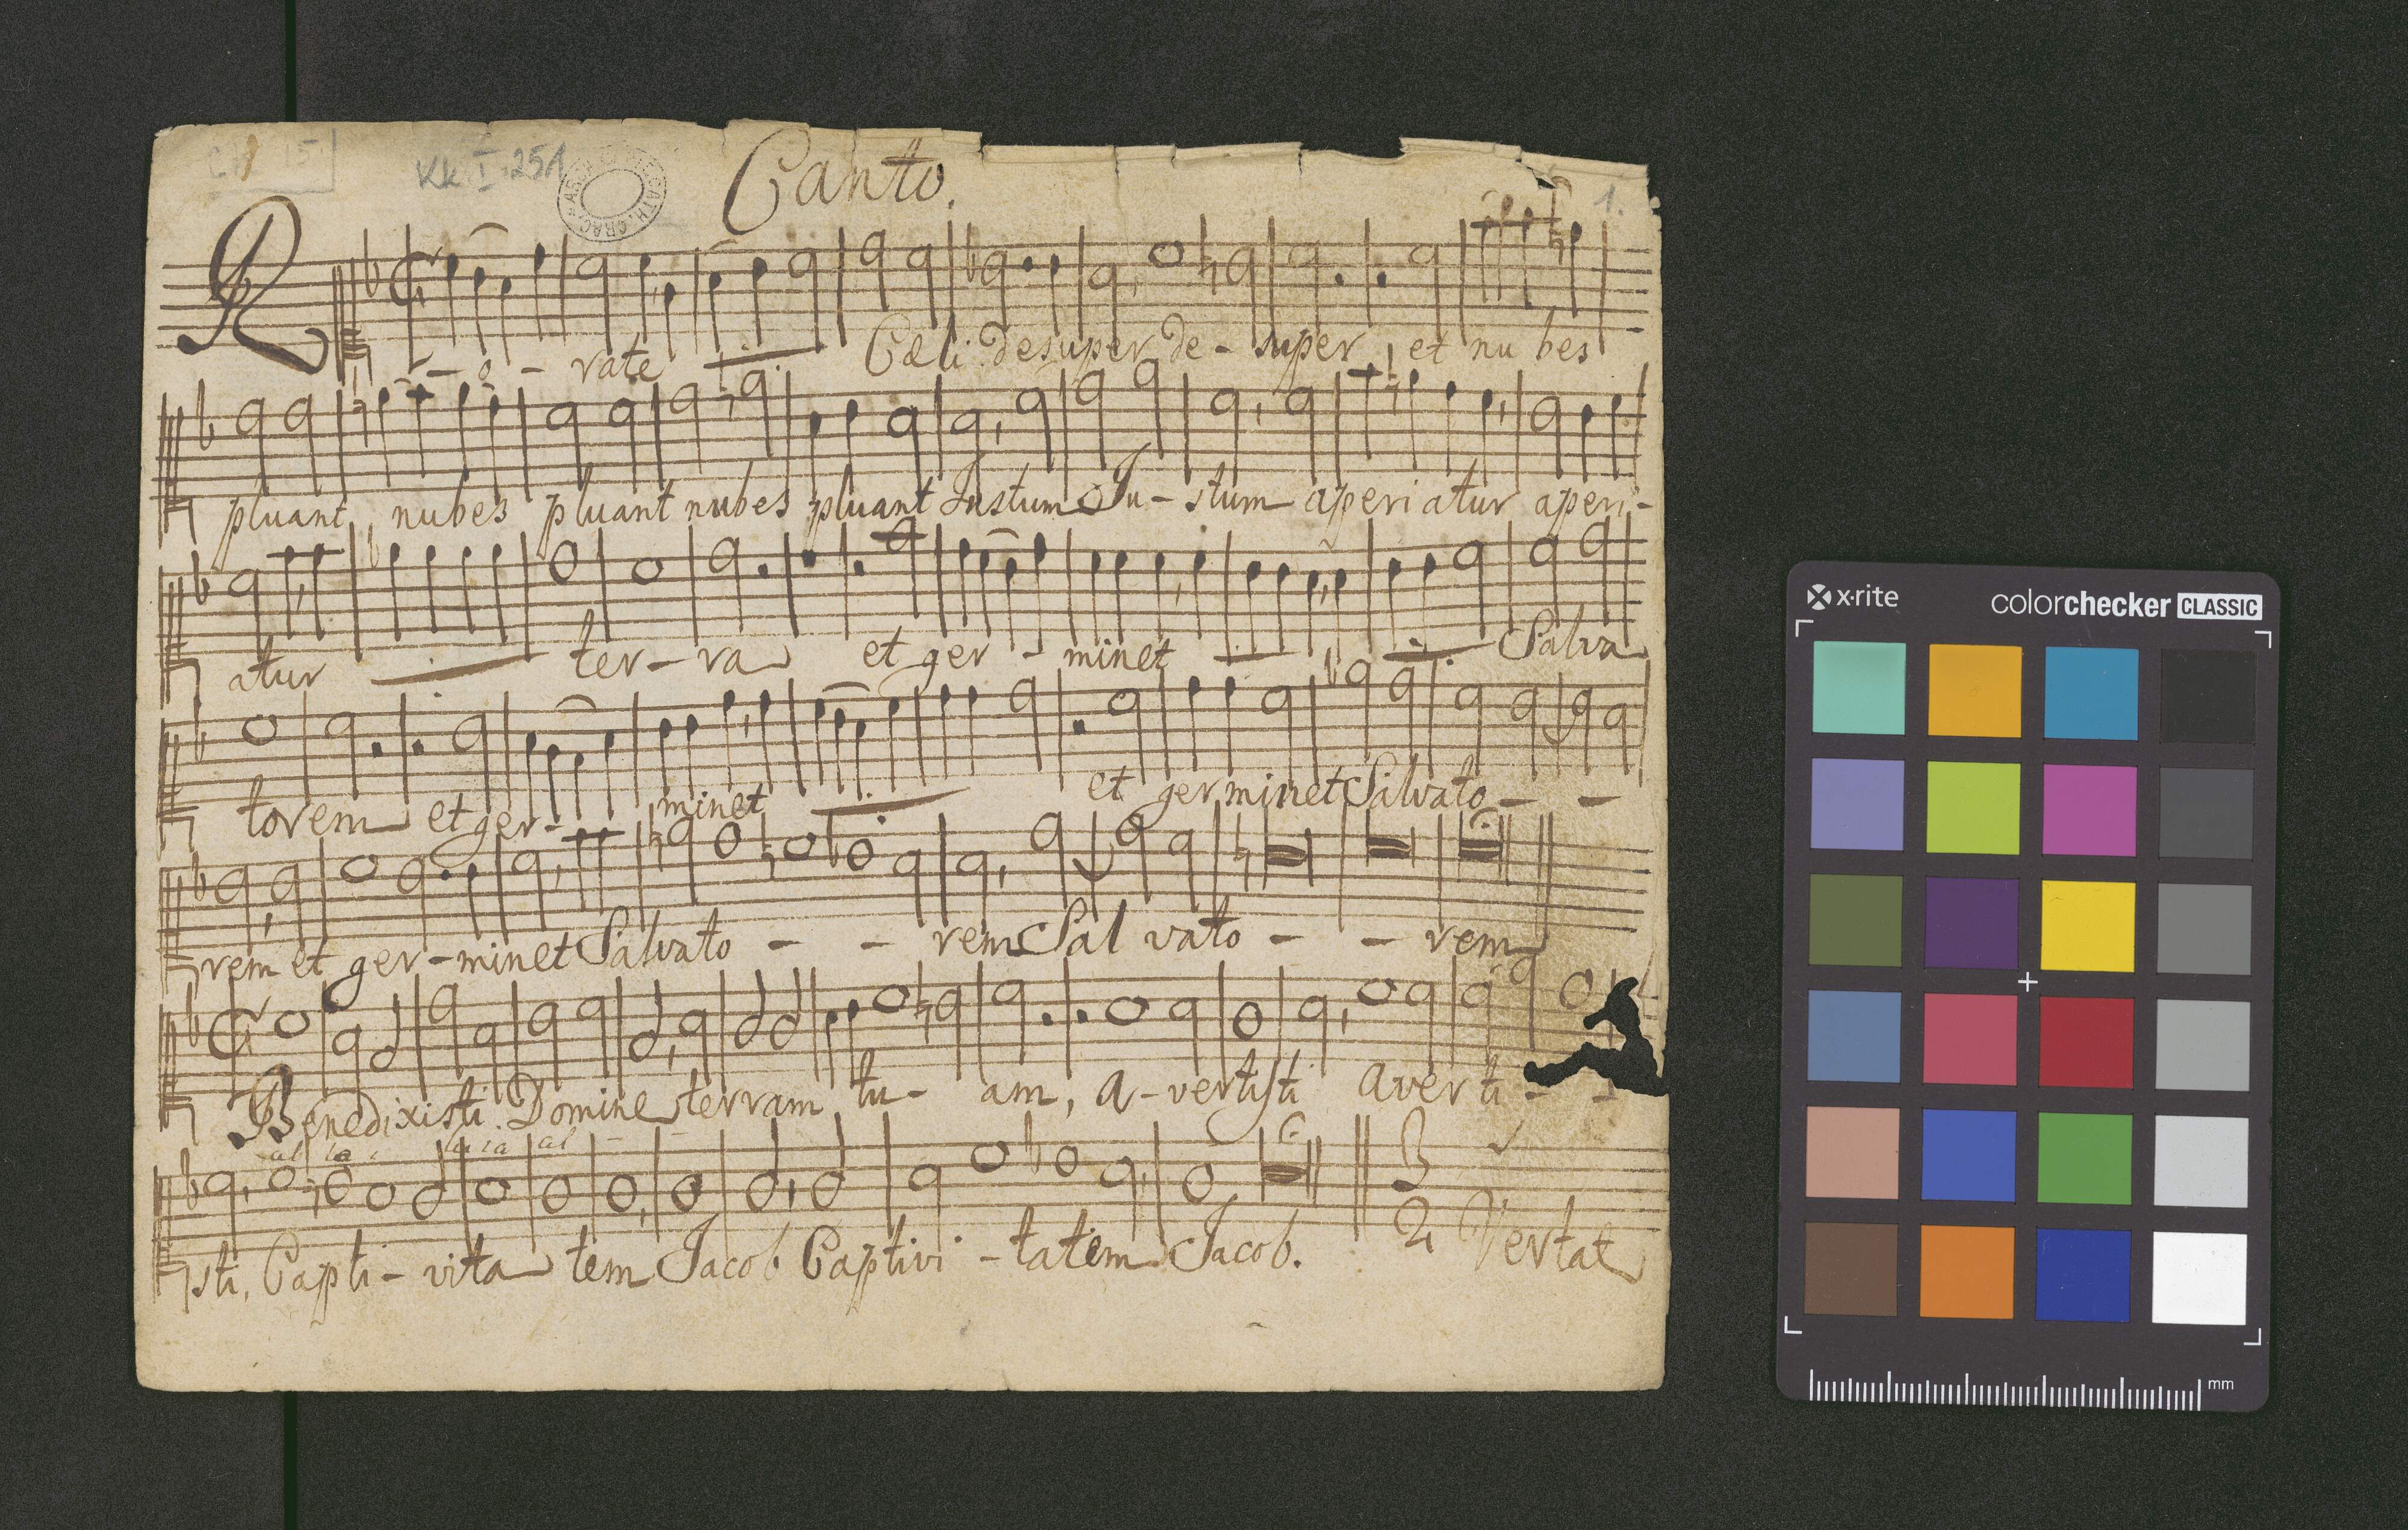 Kk. I. 251
Canto.
1.
R - o - rate Cæli desuper de - super et nu bes
pluant, nubes pluant nubes pluant Justum Ju - stum aperi atur aperi -
atur ter - ra et ger - minet Salva
torem et ger - minet et germinet Salvato - -
rem et ger - minet Salvato - - rem Sal vato - - rem
Benedixisti Domine terram tu - am, a - vertisti averti - -
al la la ia al - -
sti, Capti - vita tem Jacob Captivi - tatem Jacob. Vertat
x·rite
colorchecker CLASSIC
mm